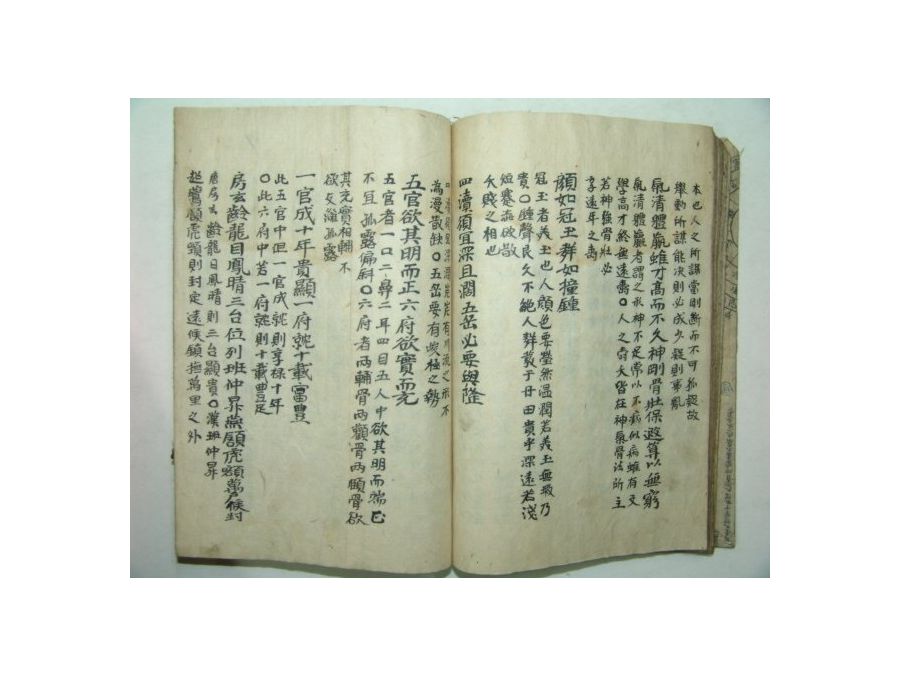 本也人之所謀當則断而不可狐疑故
擧動所謀能决則必成多疑則事乱
氣清體羸雖才高而不久神剛骨壯保遐算以無窮
氣清體羸者謂之形神不足常以不病似病雖有文
學高才終無遠壽〇人之壽夭皆在神氣骨法所主
若神強骨壯必
享遠年之壽
顔如冠玉聲如撞鍾
冠玉者美玉也人顔色要瑩然温潤若美玉無瑕乃
貴〇鍾聲良久不絶人聲發于丹田貴乎深遠若淺
短蹇澁破散
夭賤之相也
四瀆須宜深且濶五岳必要與隆
川流之形不
為漫散蝕〇五岳要有峻極之勢
五官欲其明而正六府欲實而充
五官者一口二鼻三耳四目五人中欲其明而端正
不宜孤露偏斜〇六府者兩輔骨兩顴骨兩頤骨欲
其充實相輔不
欲支離孤露
一官成十年貴顯一府就十載富豊
此五官中但一官成就則享祿十年
〇此六府中若一府就則十載豊足
房玄齡龍目鳳睛三台位列班仲昇燕頷虎頸萬戶侯封
唐房玄齡龍目鳳睛則三台顯貴〇漢班仲昇
燕頷虎頸則封定遠侯鎮撫萬里之外